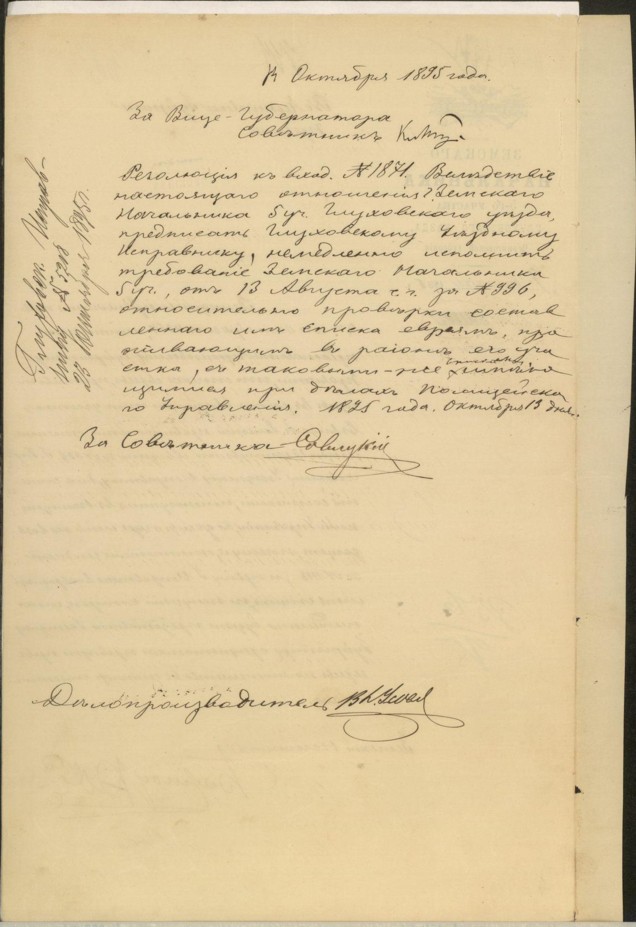 Октября 1895 года.
За Вице-Губернатора
Совѣтникъ
Резолюція къ вход. № 1871. Вслѣдствіе
настоящаго отношенія Г. Земскаго
Начальника 5 уч. Глуховскаго уѣзда,
предписать Глуховскому Уѣздному
Исправнику, немедленно исполнить
требованіе Земскаго Начальника
5 уч., отъ 13 Августа с. г. за № 996,
относительно провѣрки состав
леннаго имъ списка евреямъ, про
живающимъ въ районѣ его уча
стка, съ таковыми-же
щимися при дѣлахъ Полицейска
го Управленія. 1895 года. Октября 13 дня.
За Совѣтника Савицкій
Дѣлопроизводитель
Глуховск. Исправ-
нику № 5208
23 1895 г.